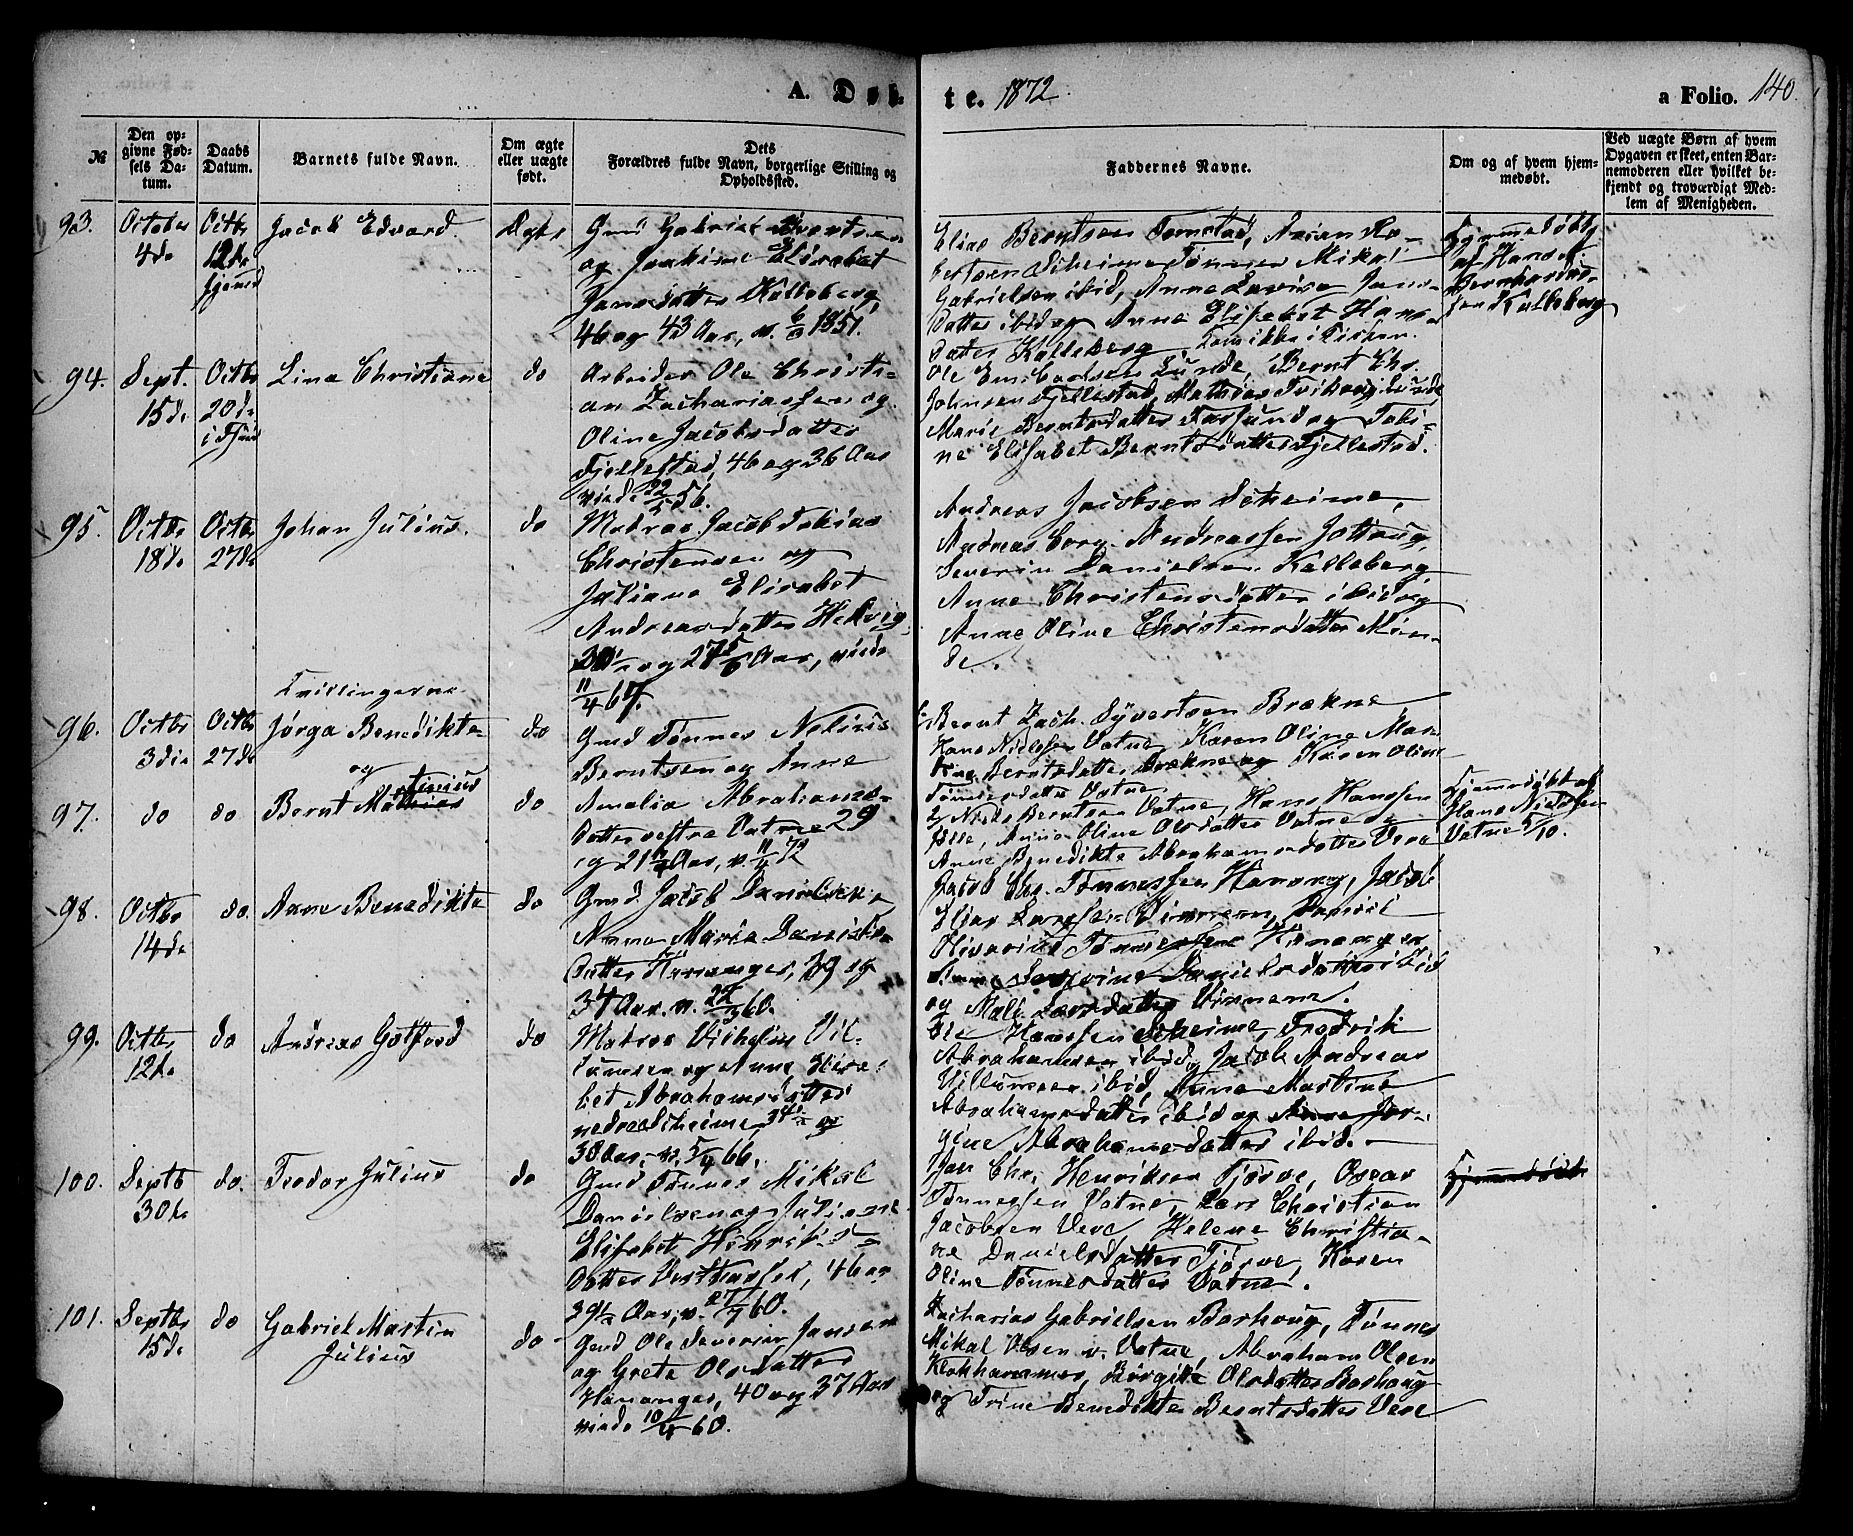 A. Døb-
te. 1872.
a Folio. 140.
№
Den op-
givne Fød-
sels Da-
tum.
Daabs
Datum.
Barnets fulde Navn.
Om ægte
eller uægte
født.
Dets
Forældres fulde Navn, borgerlige Stilling og
Opholdssted.
Faddernes Navne.
Om og af hvem hjem-
medøbt.
Ved uægte Børn af hvem
Opgaven er skeet, enten Bar-
nemoderen eller hvilket be-
kjendt og troværdigt Med-
lem af Menigheden.
93.
October
4de
Octbr
12de
Jacob Edvard.
Ægte
Gmd Gabriel Berntsen
og Joakime Elisabet
Jansdatter Kalleberg,
46 og 43 Aar, v. 6/3 1851.
Elias Berntsen Tomstad, Asian Ro-
bertsen Scheime Tønnes Mikal
Gabrielsen ibid, Anne Lovise Jans-
datter ibid og Anne Elisabet Hans-
datter Kalleberg
Hjemmedøbt
af Hans
Bernhard
Kalleberg
94.
Sept.
15de
Octbr
20de
Lina Christiane
do
Arbeider Ole Christi-
an Zachariassen og
Oline Jacobsdatter
Fjellestad, 46 og 36 Aar
viede 22/5 56.
Ole Lunde, Bernt Chr.
Johnsen Fjellestad, Mathias
Marie Berntsdatter Farsund og Tobi-
ne Elisabet Berntsdatter Fjellestad.
95.
Octbr
18de
Octbr
27de
Johan Julius.
do
Matros Jacob Tobias
Christensen og
Juliane Elisabet
Andreasdatter
og 27 Aar, viede
11/4 67.
Andreas Jacobsen Scheime,
Andreas Georg Andreassen
Severin Danielsen Kalleberg
Anne Christensdatter ibid og
Anne Oline Christensdatter Mun-
de.
Tvillingerne
96.
Octbr
3die
Octbr
27de
Jørga Benedikte
og
do
Gmd Tønnes Nelius
Berntsen og Anne
1/ Bernt Zach. Syvertsen Brækne
Hans Nielsen Vatne, Karen Oline Mar-
Berntsdatter Brækne og Karen Oline
Tønnesdatter Vatne
97.
do
do
Bernt Mathias
do
Amalia Abrahams-
datter vestre Vatne 29
og 21 Aar, v. 11/4 72
2/ Niels Berntsen Vatne, Hans Hanssen
Anna Oline Olsdatter Vatne og
Anne Benedikte Abrahamsdatter Vere
Hjemmedøbt af
Hans Nielsen
Vatne 5/10.
98.
Octbr
14de
do.
Anne Benedikte
do
Gmd. Jacob Danielsen og
Anna Maria Daniels-
datter Hananger, 39 og
34 Aar. v. 22/ 60.
Jacob Chr. Tønnessen Hanang, Jacob
Elias Larssen Vinnem, Daniel
Olivarius Tønnessen Hananger
Danielsdatter ibid
og Mali Larsdatter Vinnem.
99.
Octbr
12te
do
Andreas Gotfred
do
Matros Vilhelm Vil-
lumsen og Anne Elisa-
bet Abrahamsdatter
nedre Scheime, 34 og
30 Aar, v. 5/4 66.
Ole Hanssen Scheime, Fredrik
Abrahamsen ibid, Jacob Andreas
Villumsen ibid, Anne Martine
Abrahamsdatter ibid og Anne Jør-
gine Abrahamsdatter ibid.
100.
Septb
30te
do.
Teodor Julius
do
Gmd Tønnes Mikal
Danielsen og Juliane
Elisabet Henriks-
datter Vesthassel, 46 og
39 Aar, v. 27/ 60.
Jan Chr. Henriksen Tjørve, Oscar
Tønnessen Vatne, Lars Christian
Jacobsen Vere, Helene Christia-
ne Danielsdatter Tjørve, Karen
Oline Tønnesdatter Vatne.
Hjemmedøbt
101.
Septbr
15de
do
Gabriel Martin
Julius
do
Gmd Ole Severin Jansen
og Grete Olsdatter
Hananger, 40 og 37 Aar
viede 10/4 60.
Zacharias Gabrielsen Borhoug, Tønnes
Mikal Olsen v. Vatne, Abraham Olsen
Klokhammer, Birgitte Olsdatter Borhoug
og Trine Benedikte Berntsdatter Vere